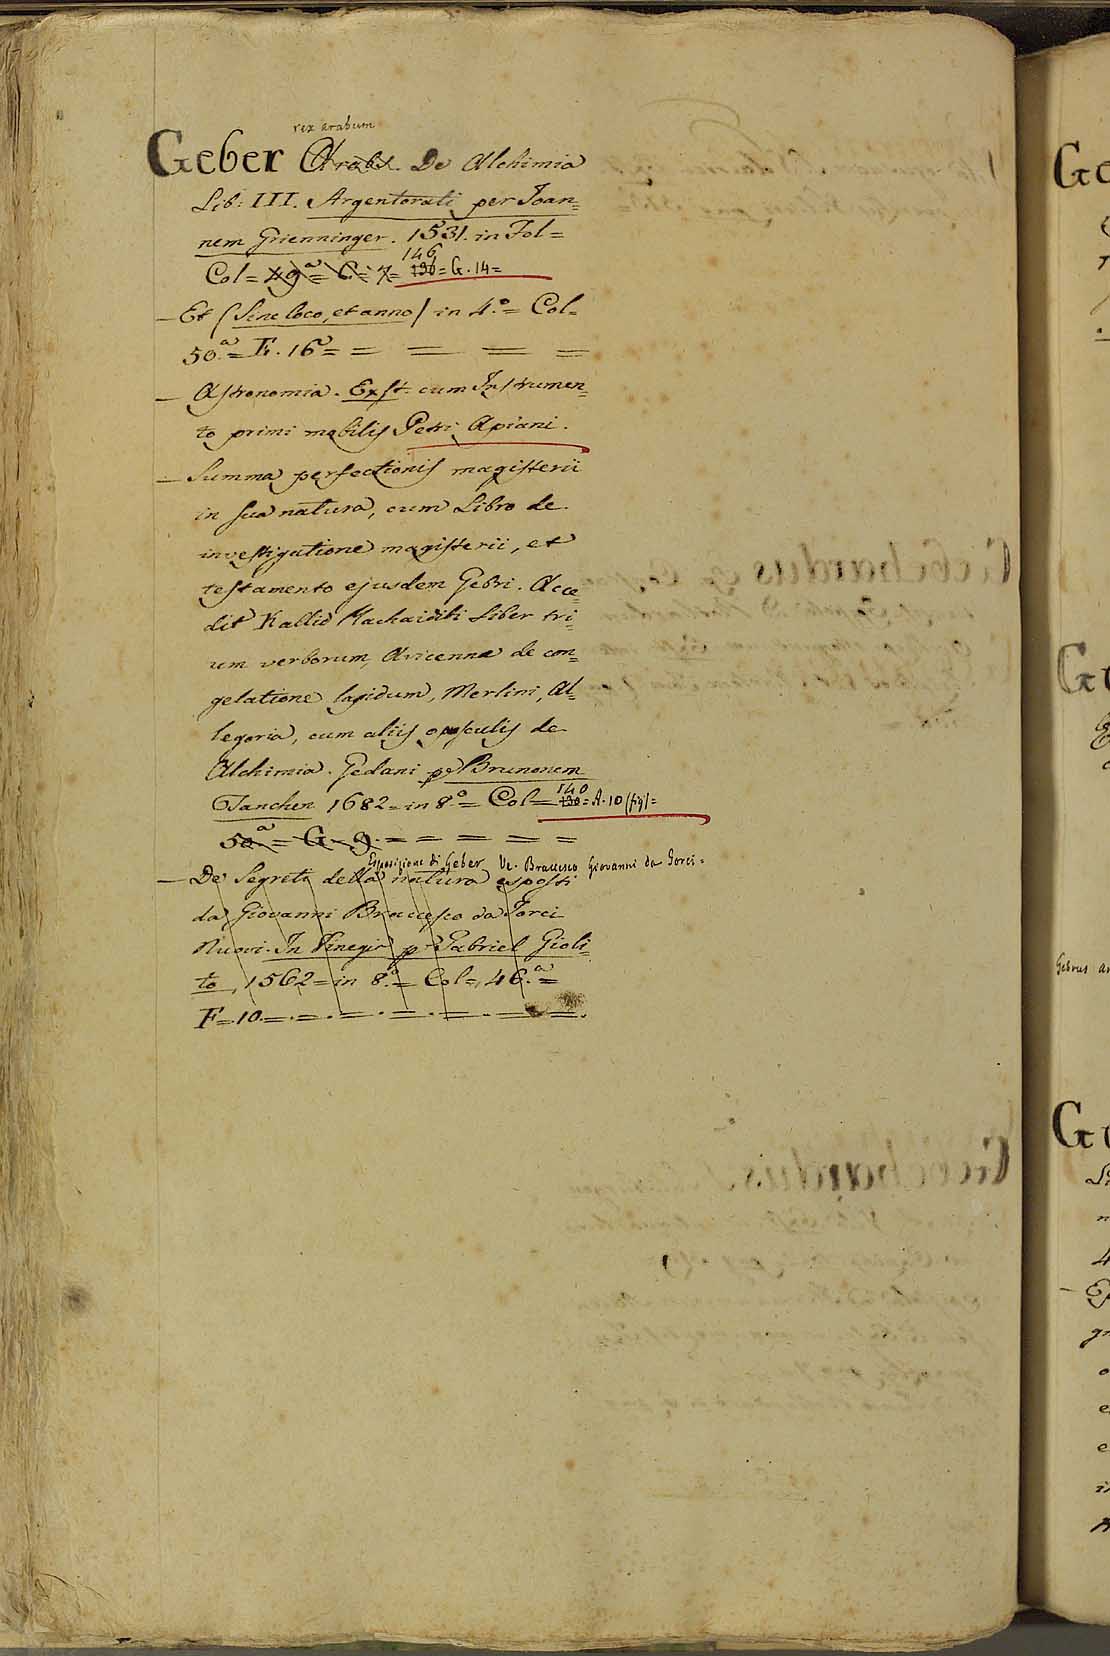 rex arabum
Geber Arabs. De Alchimia
Lib: III. Argentorati per Joan=
nem Grienninger. 1531. in Fol=
146
Col= 49.a= C. 7= 136= G. 14=
— Et (Sine loco, et anno) in 4.o= Col=
50.a= F. 16= = = = =
— Astronomia. Exst. cum Instrumen=
to primi mobilis Petri Apiani.
— Summa perfectionis magisterii
in sua natura, cum Libro de
investigatione magisterii, et
testamento ejusdem Gebri. Acce=
dit Kallid Rachaidibi Liber tri=
um verborum, Avicennæ de con=
gelatione lapidum, Merlini, Al=
legoria, cum aliis opusculis de
Alchimia. Gedani p. Brunonem
140
Tanchen 1682= in 8.o= Col= 130= A. 10 (fig)=
50.a= G. 9. = = = = =
Esposizione di Geber Ve. Braccesco Giovanni da Jorci=
— De Segreti della natura esposti
da Giovanni Braccesco da Jorci
Nuovi. In Vinegia p. Gabriel Gioli=
to, 1562= in 8.o= Col= 46.a=
F= 10. = . = . = . = . = . = .
Gebhardus
Gebhardus
Ge
Ge
Gebrus ar
Ge